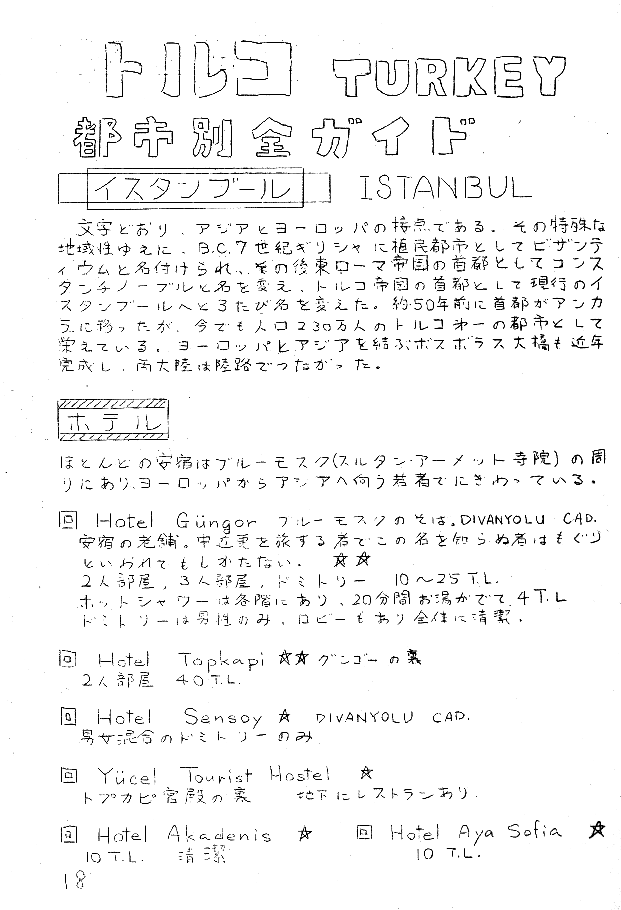 トルコ TURKEY
都市別全ガイド
イスタンブール ISTANBUL
文字どおり、アジアとヨーロッパの接点である。その特殊な
地域性ゆえに、B.C.7世紀ギリシャに植民都市としてビザンテ
ィウムと名付けられ、その後東ローマ帝国の首都としてコンス
タンチノープルと名を変え、トルコ帝国の首都として現行のイ
スタンブールへと3たび名を変えた。約50年前に首都がアンカ
ラに移ったが、今でも人口230万人のトルコ第一の都市として
栄えている。ヨーロッパとアジアを結ぶボスボラス大橋も近年
完成し、両大陸は陸路でつながった。
ホテル
ほとんどの安宿はブルーモスク(スルタン・アーメット寺院)の周
りにあり、ヨーロッパからアジアへ向う若者でにぎわっている。
回 Hotel Güngor ブルーモスクのそば。DIVANYOLU CAD.
安宿の老舗。中近東を旅する者でこの名を知らぬ者はもぐり
といわれてもしかたない。 ☆☆
2人部屋,3人部屋,ドミトリー 10〜25T.L.
ホットシャワーは各階にあり、20分間お湯がでて4T.L
ドミトリーは男性のみ、ロビーもあり全体に清潔.
回 Hotel Topkapi ☆☆ グンゴーの裏
2人部屋 40T.L.
回 Hotel Sensoy ☆ DIVANYOLU CAD.
男女混合のドミトリーのみ
回 Yücel Tourist Hostel ☆
トプカピ宮殿の裏 地下にレストランあり.
回 Hotel Akadenis ☆ 回 Hotel Aya Sofia ☆
10T.L. 清潔 10T.L.
18